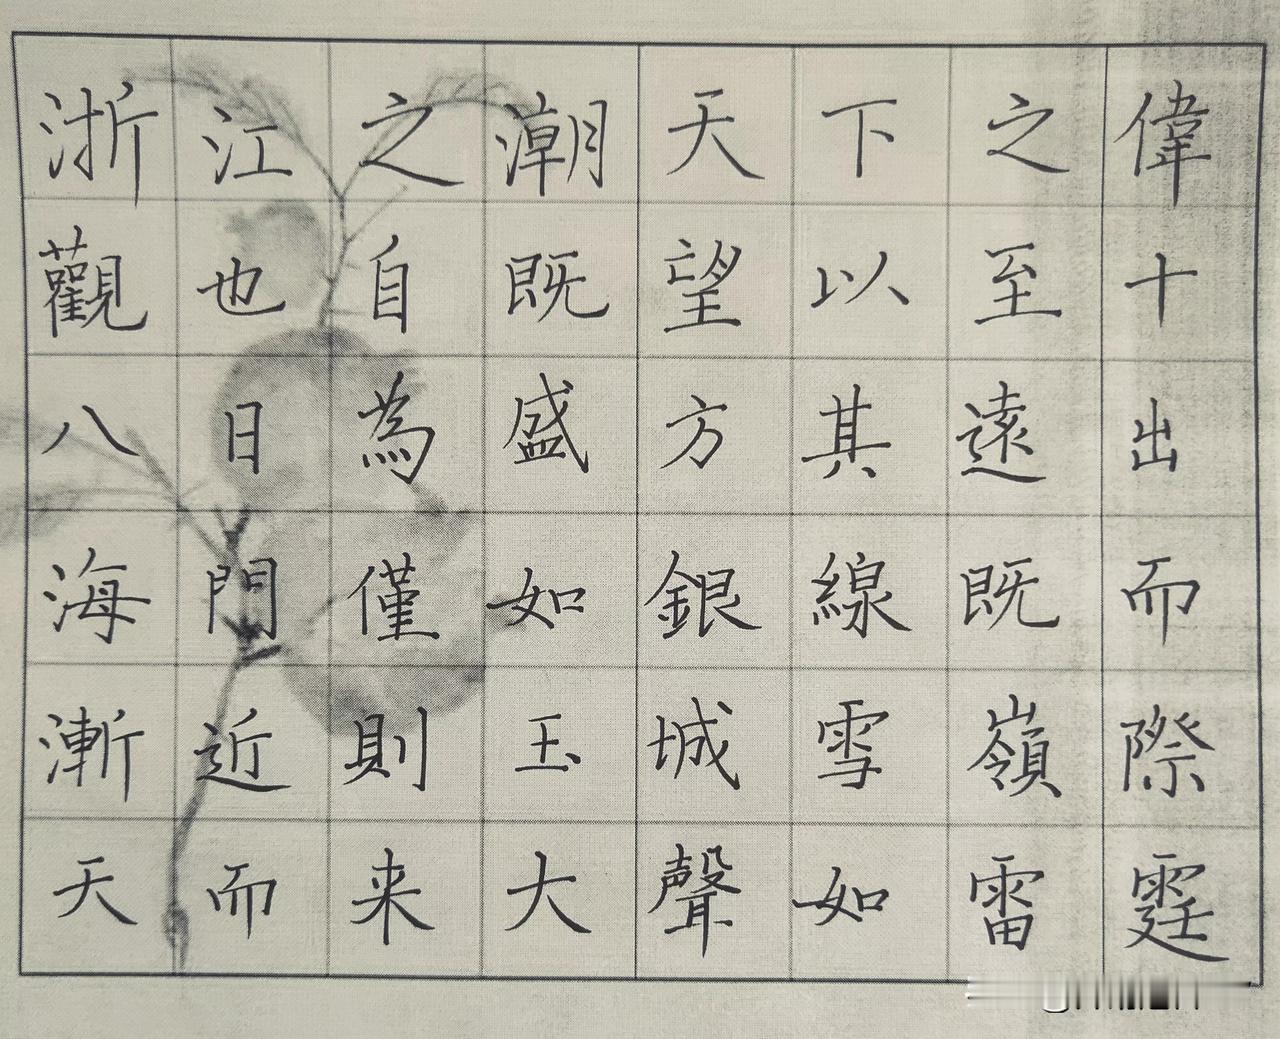 浙江之潮天下之偉
觀也自既望以至十
八日為盛方其遠出
海門僅如銀線既而
漸近則玉城雪嶺際
天而来大聲如雷霆